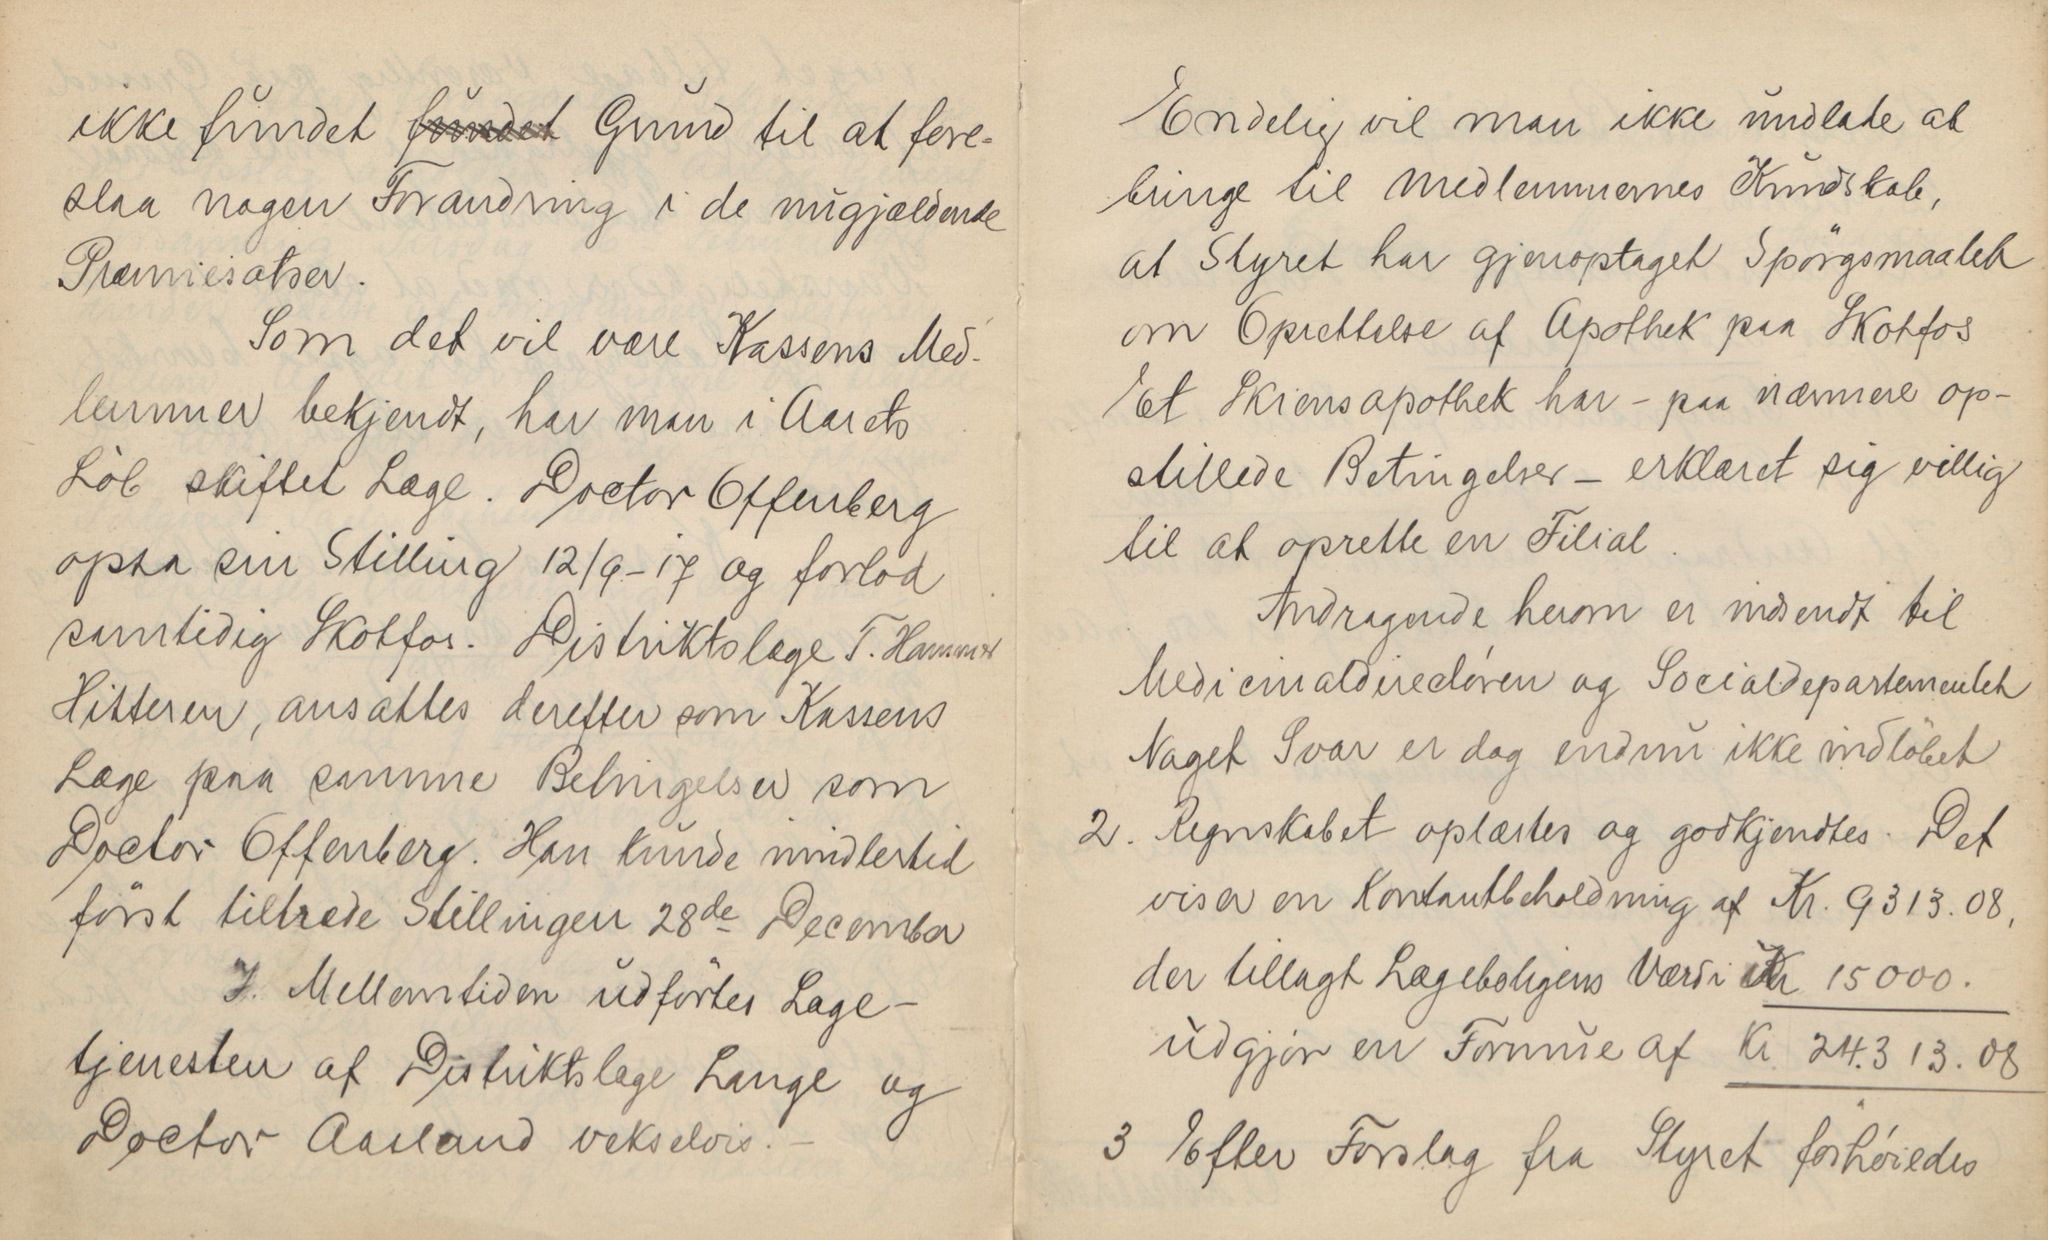 ikke fundet fundet Grund til at fore-
slaa nogen Forandring i de nugjældende
Præmiesatser.
Som det vil være Kassens Med-
lemmer bekjendt, har man i Aarets
Löb skiftet Læge. Doctor Offenberg
opsa sin Stilling 12/9-17 og forlod
samtidig Skotfos. Distriktslæge T. Hammer
Hitteren, ansattes derefter som Kassens
Læge paa samme Betingelser som
Doctor Offenberg. Han kunde imidlertid
först tiltræde Stillingen 28de December
I. Mellemtiden udförtes Læge-
tjenesten af Distriktslæge Lange og
Doctor Aasland vekselvis. -
Endelig vil man ikke undlade at
bringe til Medlemmernes Kundskab,
at Styret har gjenoptaget Spörgsmaalet
om Oprettelse af Apothek paa Skotfos
Et Skiensapothek har - paa nærmere op-
stillede Betingelser - erklæret sig villig
til at oprette en Filial.
Andragende herom er indsendt til
Medicinaldirectóren og Socialdepartementet
Noget Svar er dog endnu ikke indlöbet
2. Regnskabet oplæstes og godkjendtes. Det
viser en Kontantbeholdning af Kr. 9313.08,
der tillagt Lægeboligens Værdi Kr 15000.
udgjör en Formue af Kr 24.313.08
3 Efter Forslag fra Styret forhóiedes